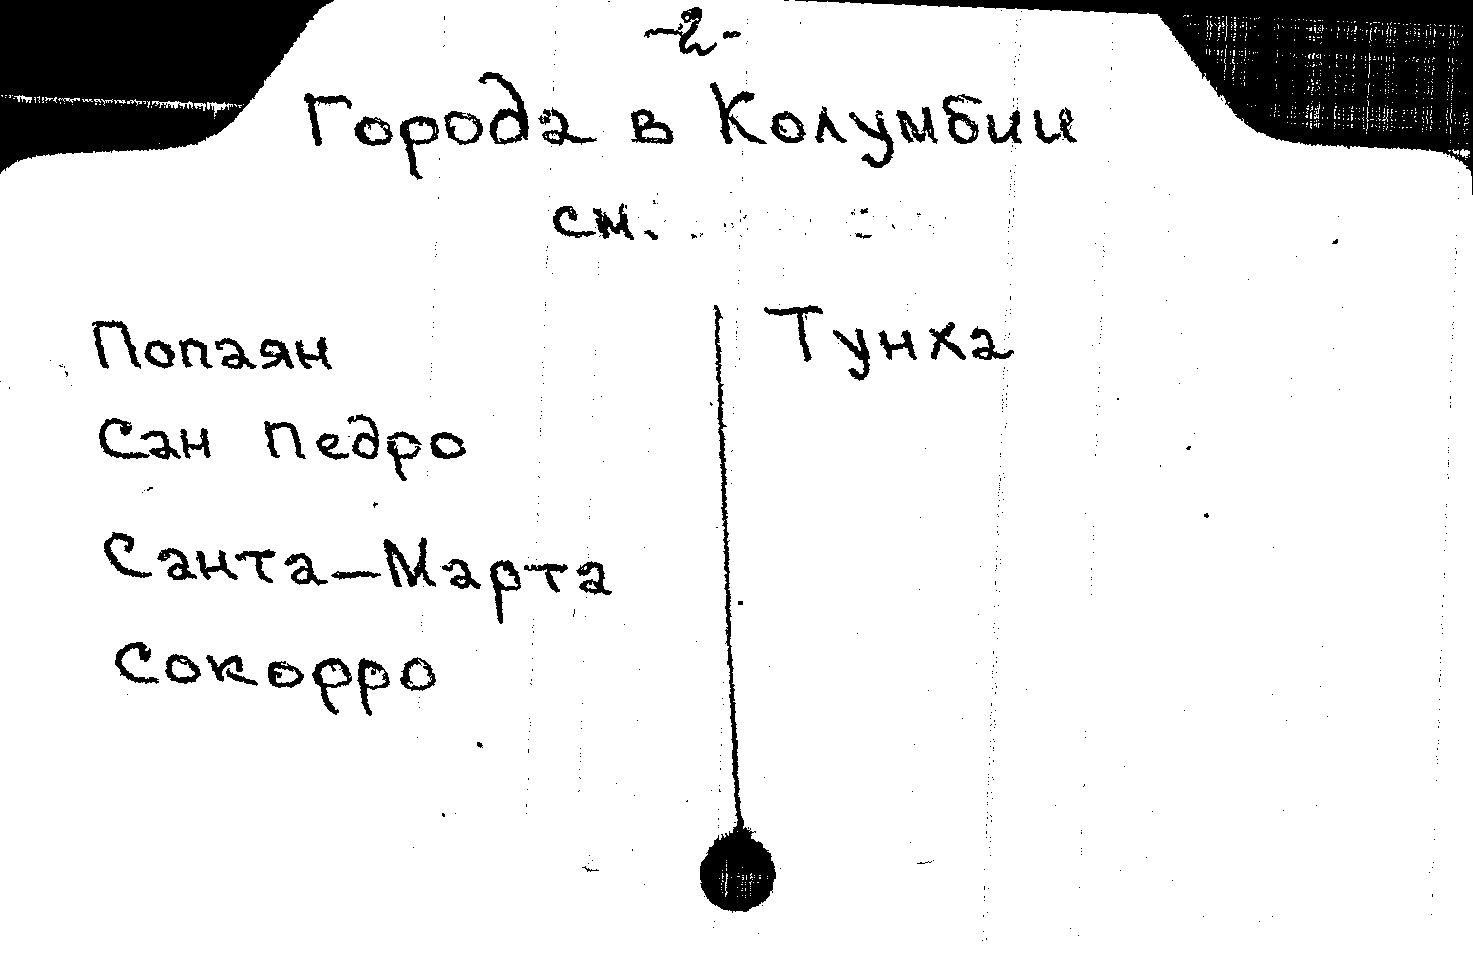 -2-
Города в Колумбии
см.
Попаян
Сан Педро
Санта-Марта
Сокорро
Тунха